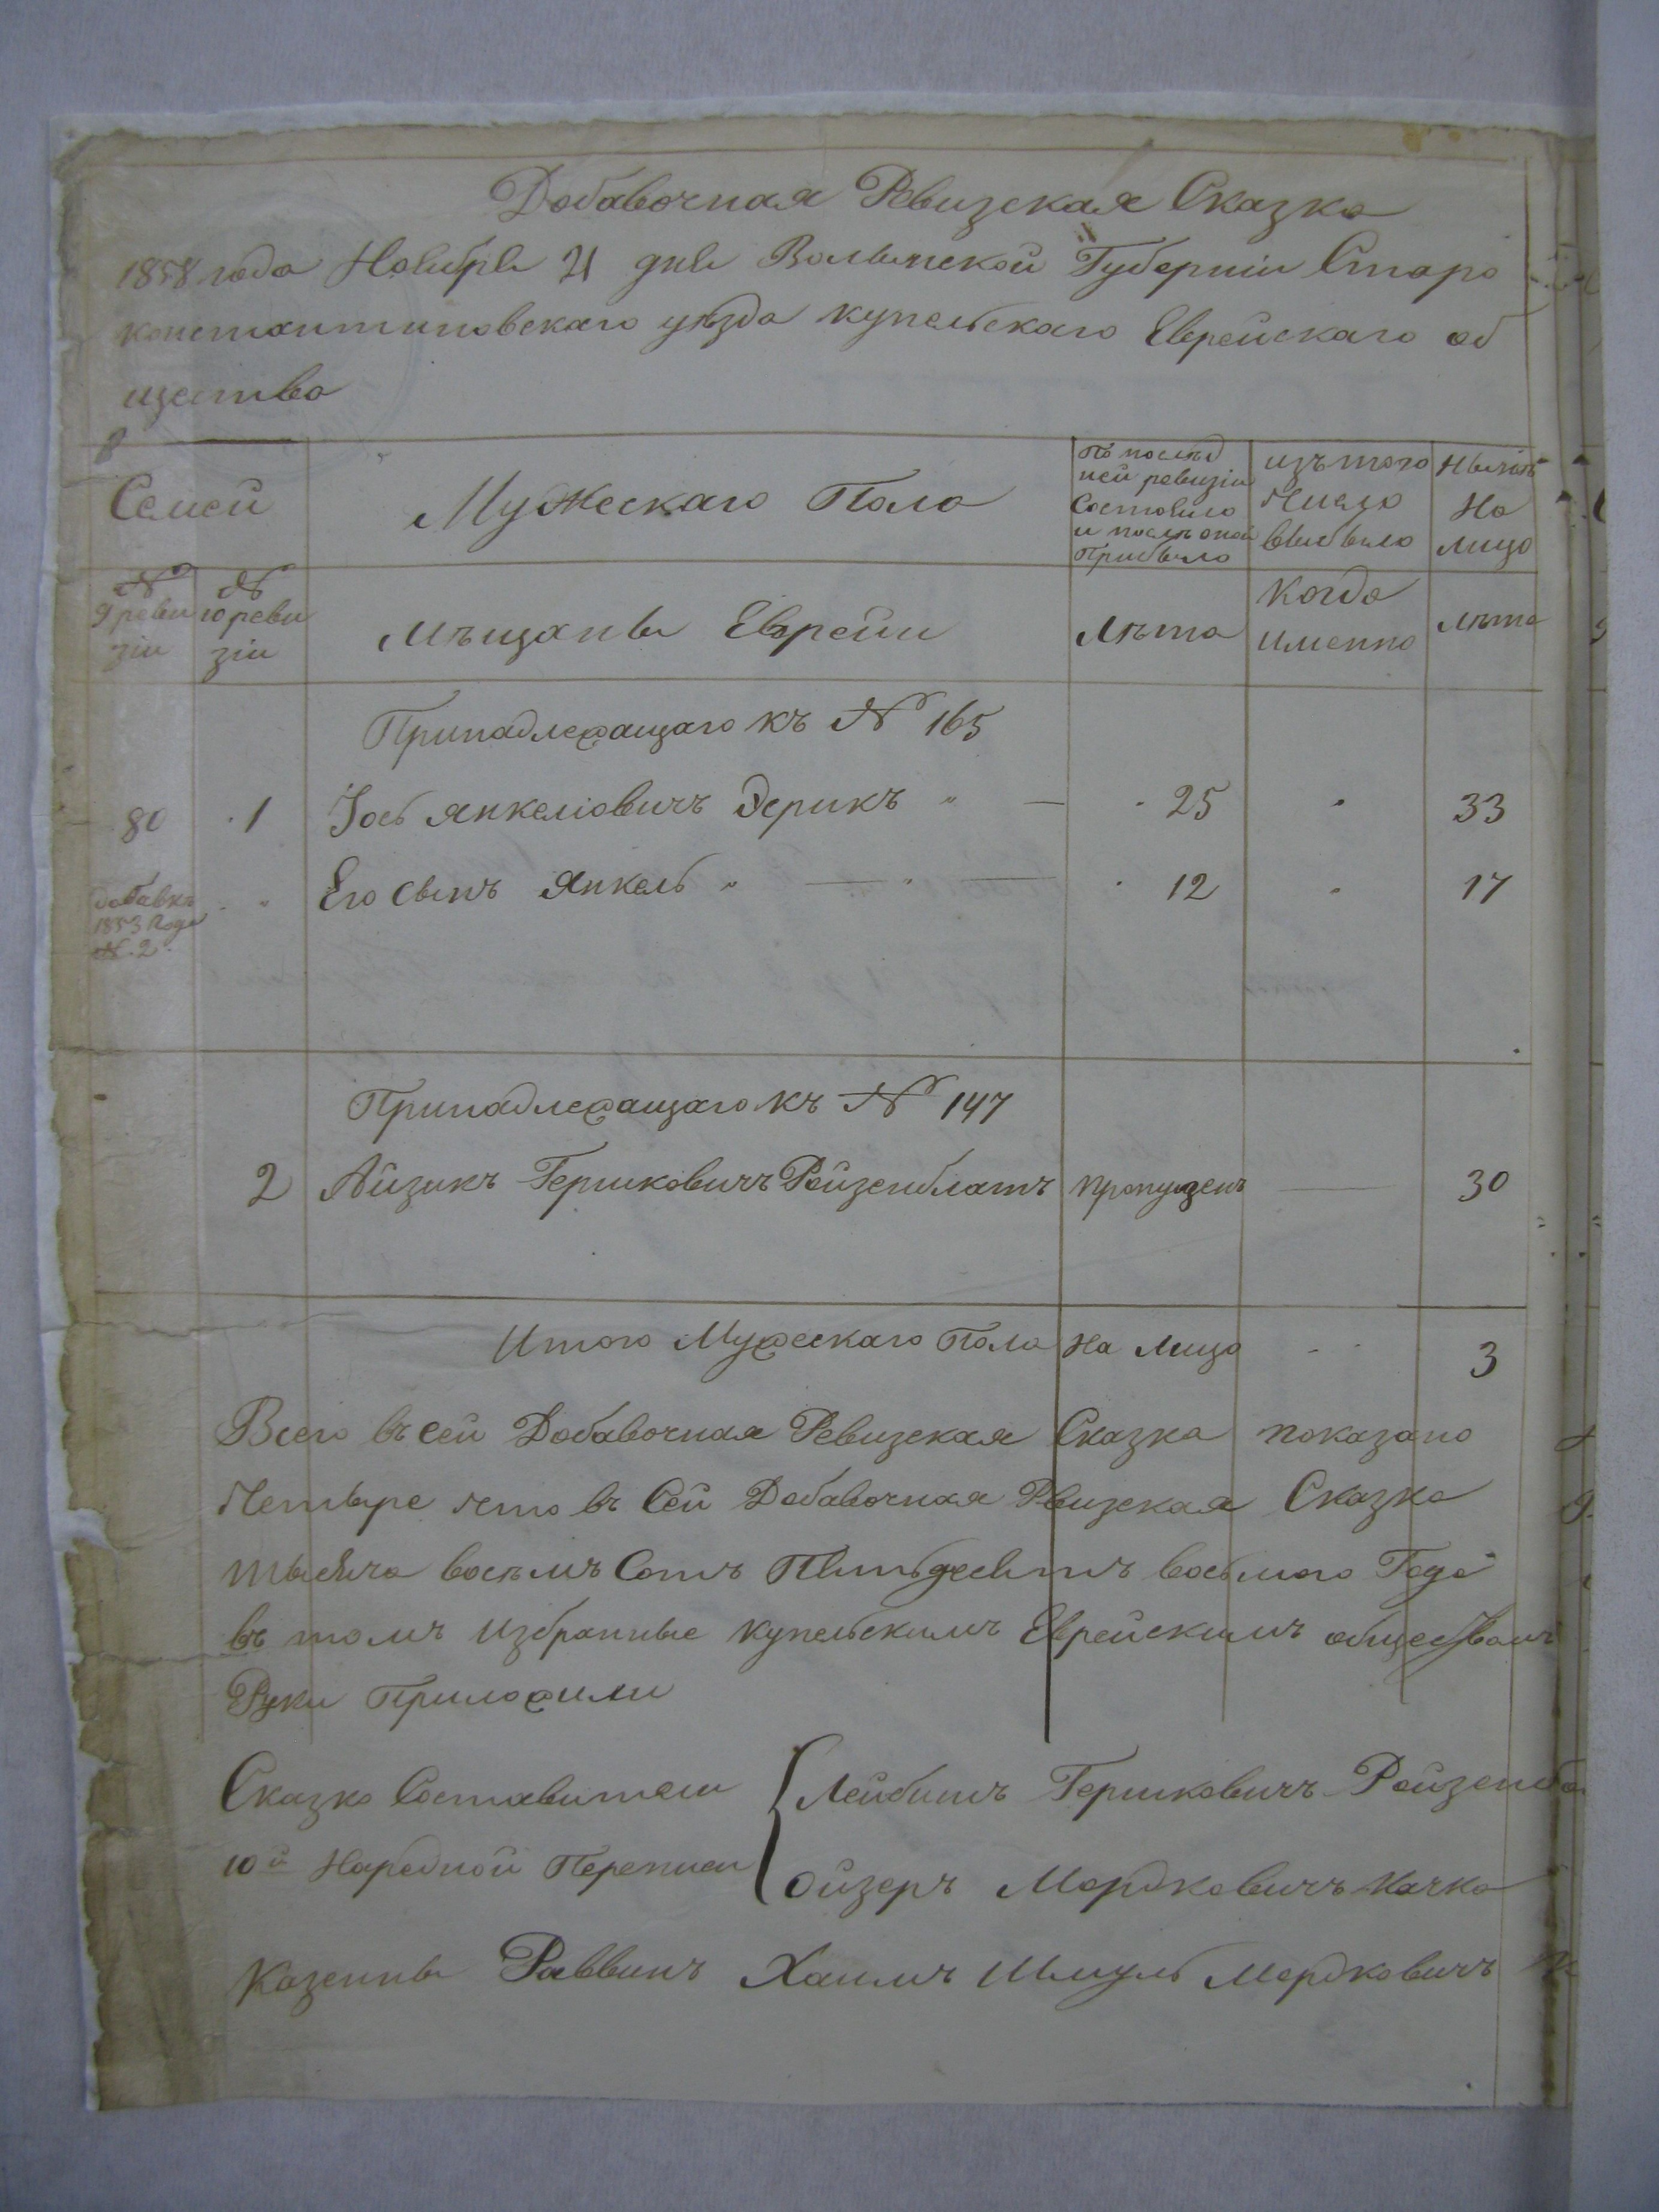 Добавочная Ревизская Сказка
1858 года Ноября 21 дня Волынской Губерніи Старо
константиновскаго уѣзда купельскаго Еврейскаго об
щества
Семей
Мужескаго Пола
По послѣд
ней ревизіи
Состояло
и послѣ оной
Прибыло
изъ того
Числа
выбыло
Нынѣ
На
лицо
№
9 реви
зіи
№
10 реви
зіи
Мѣщаны Евреи
Лѣта
Когда
Именно
Лѣта
Принадлежащаго къ № 165
80 1 Іось Янкеліовичъ Дерикъ 25 33
добавка
1853 Года
№. 2
Его Сынъ Янкель 12 17
Принадлежащаго къ № 147
2 Айзикъ Гершковичъ Ройзенблатъ пропущенъ 30
Итого Мужескаго Пола На Лицо 3
Всего въ сей Добавочная Ревизская Сказка показано
Четыре что въ Сей Добавочная Ревизская Сказка
тысяча восемъ Сотъ Пятьдесятъ восьмого Года
въ томъ избранные купельскимъ Еврейскимъ обществомъ
Руки Приложили
Сказко Составители
10й Народной Переписи
Лейбишъ Гершковичъ
Ойзеръ Мордковичъ Качка
Казенны Раввинъ Хаимъ Шмуль Мордковичъ